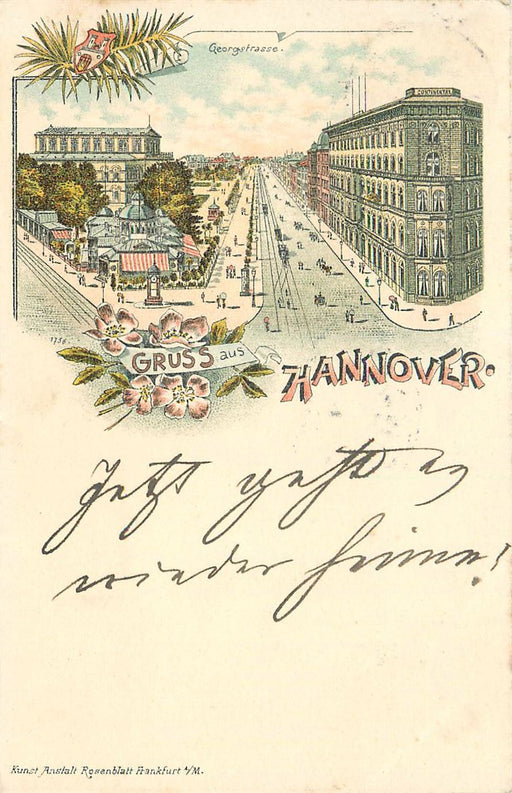 Georgstrasse.
CONTINENTAL
1736
GRUSS aus
HANNOVER.
Jetzt geht es
wieder heim!
Kunst Anstalt Rosenblatt Frankfurt a/M.